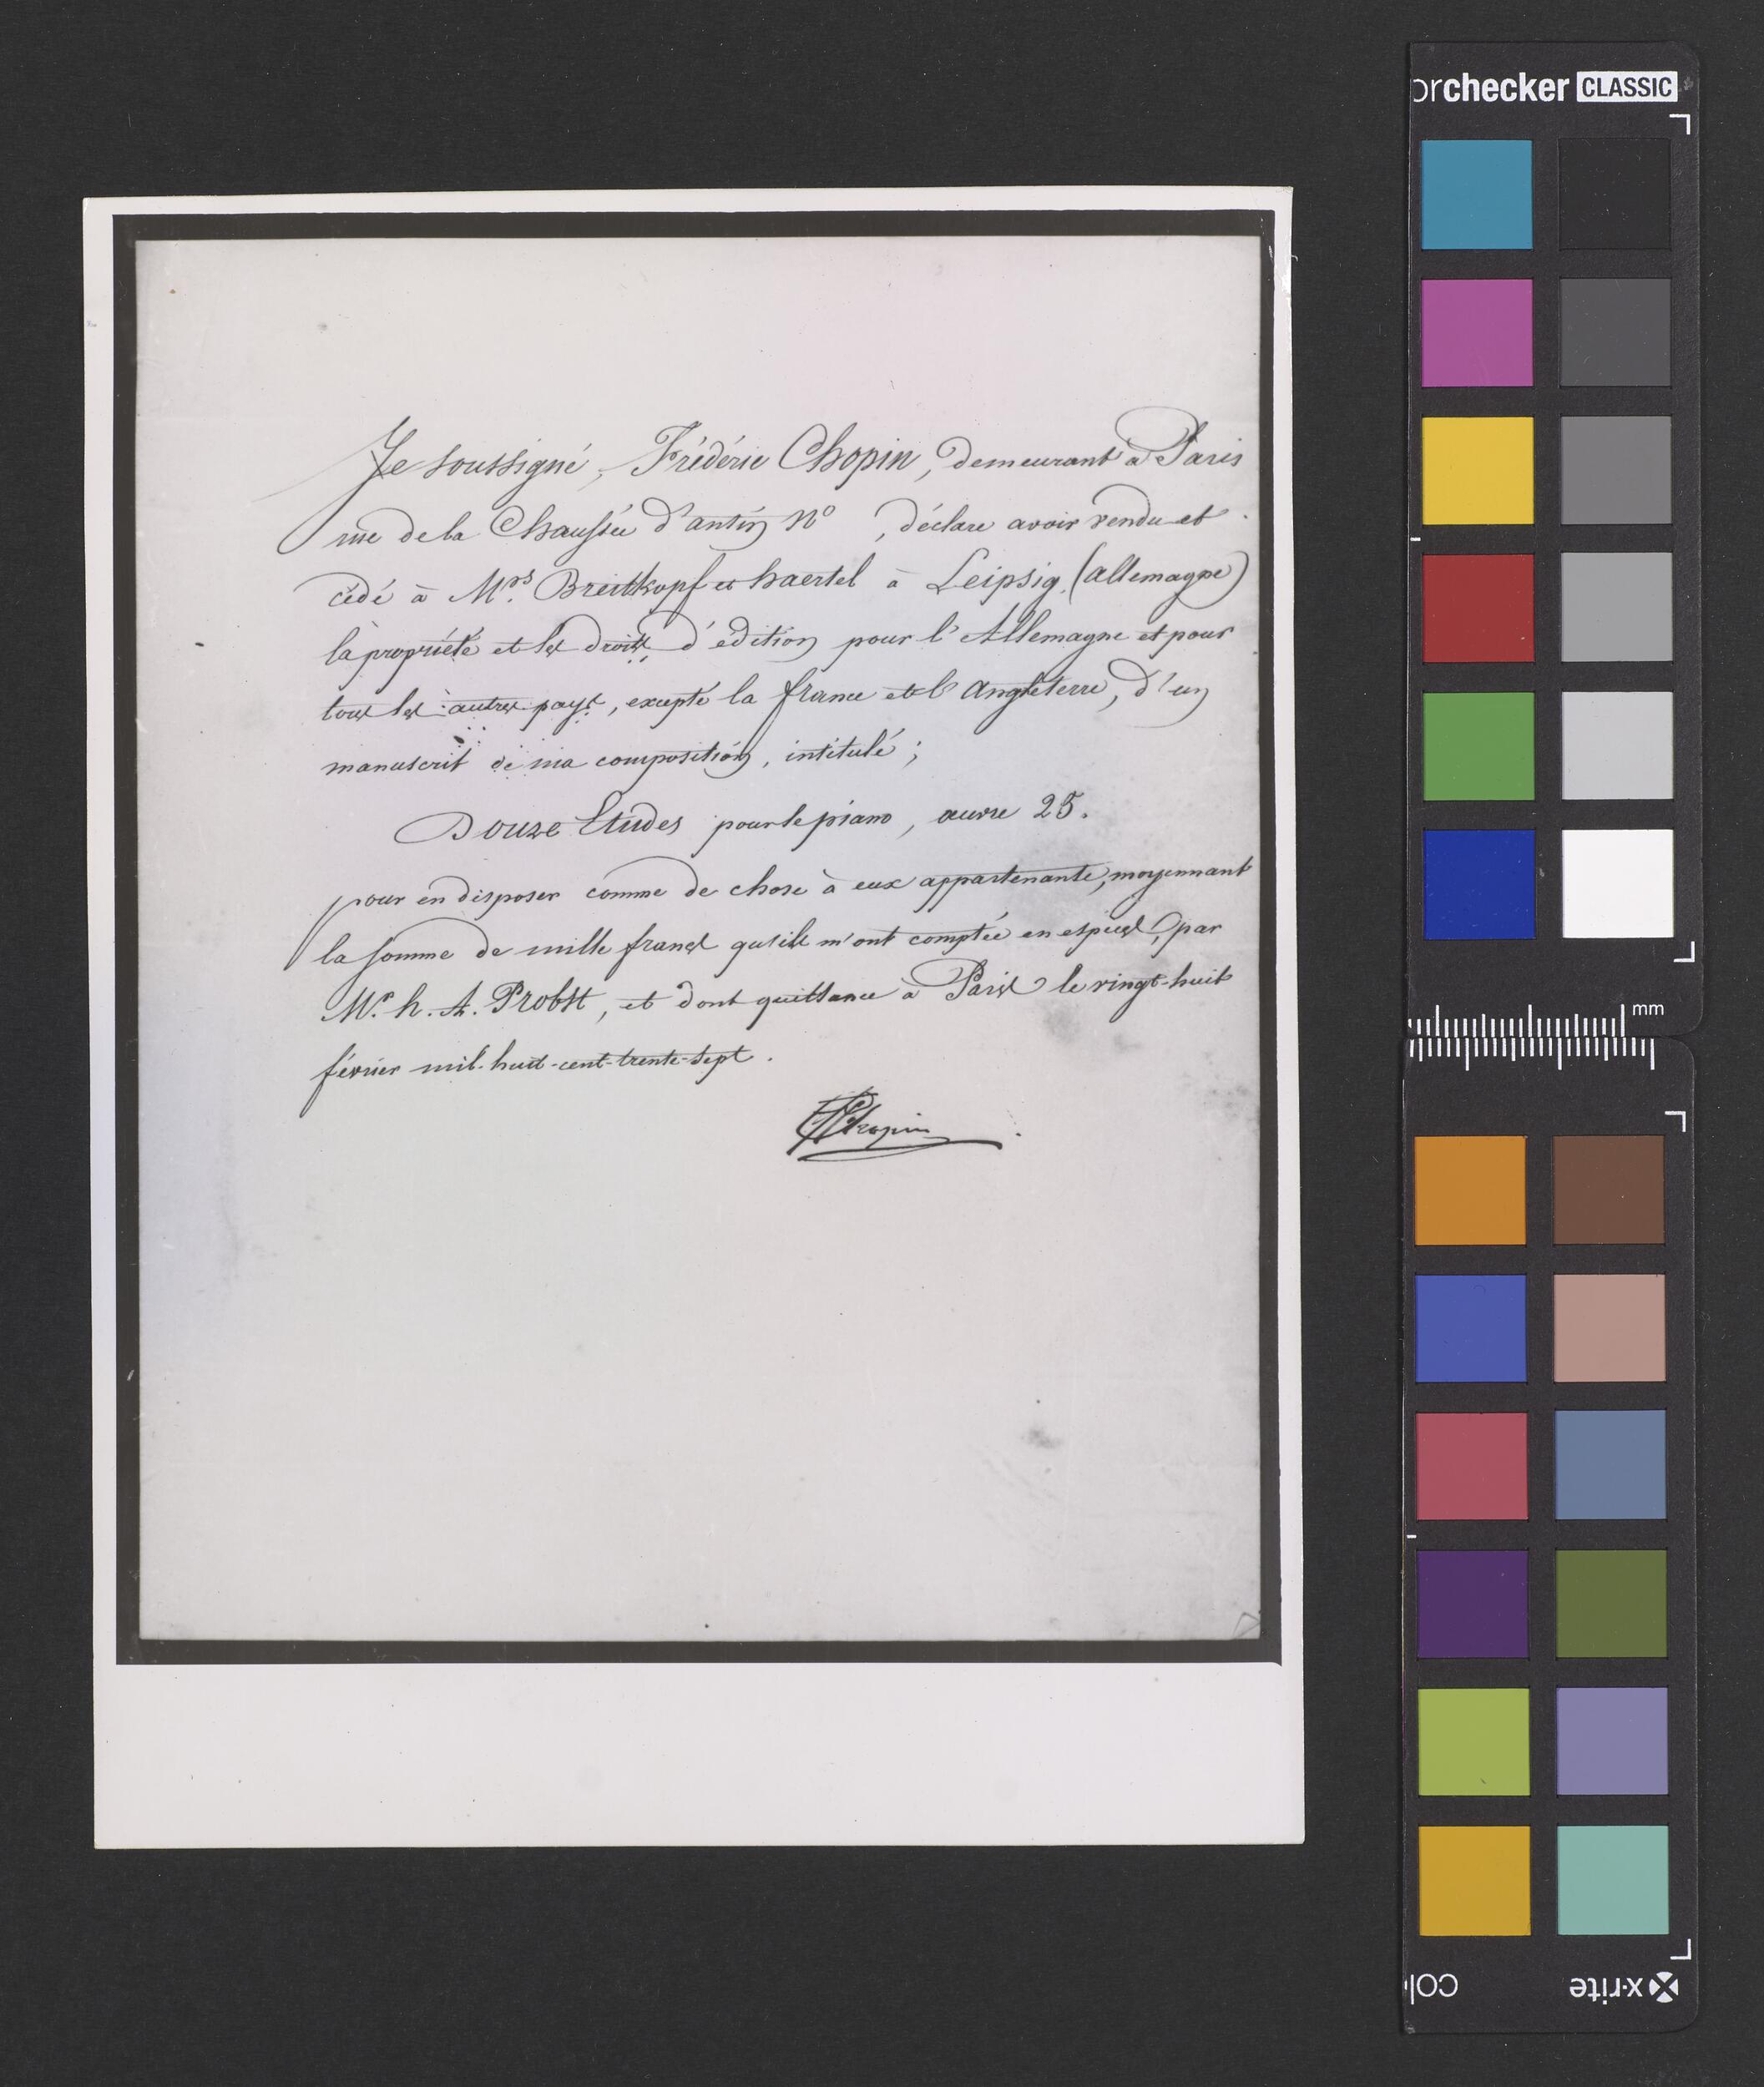 Je soussigné, Frédéric Chopin, demeurant à Paris
rue de la Chaussée d'antin No , déclare avoir vendu et
cédé à Mrs. Breitkopf et haertel à Leipsig, (allemagne)
la propriété et les droits d'édition pour l'Allemagne et pour
tous les autres pays, excepté la france et l'Angleterre, d'un
manuscrit de ma composition, intitulé ;
Douze Etudes pour le piano, œuvre 25.
pour en disposer comme de chose à eux appartenante, moyennant
la somme de mille francs qu'ils m'ont comptée en espèces, par
Mr. h. A. Probst, et dont quittance à Paris le vingt-huit
février mil-huit-cent-trente-sept.
FChopin
orchecker CLASSIC
mm
x-rite
col